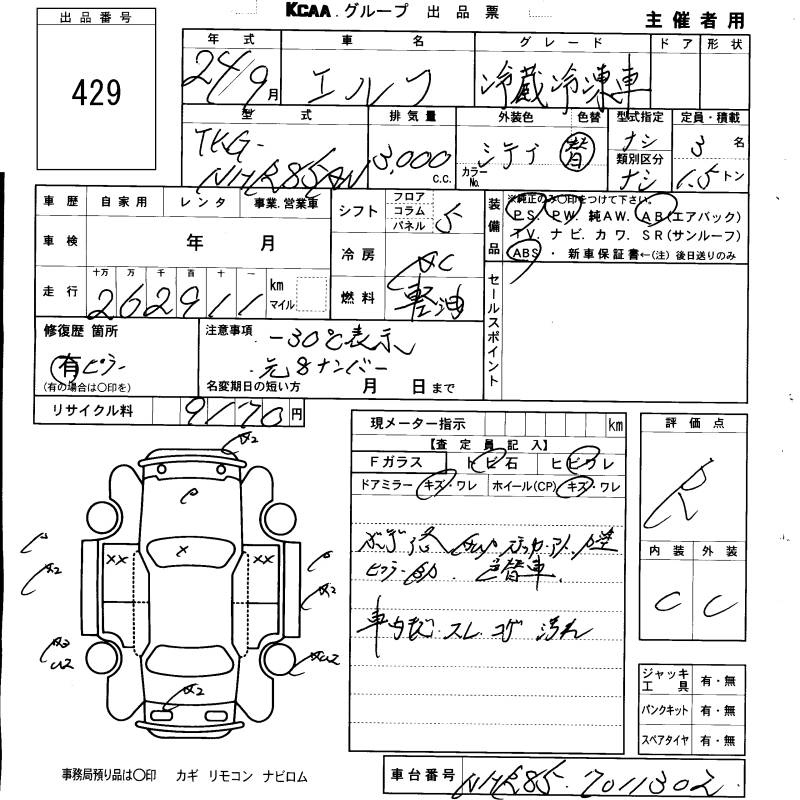 KCAA グループ 出品票
主催者用
出品番号
429
年式 車名 グレード ドア 形状
24/9月 エルフ 冷蔵冷凍車
型式 排気量 外装色 色替 型式指定 定員・積載
TKG-NHR85AN 3,000c.c. シロイ 替 カラーNo. ナシ 3名
類別区分 ナシ 1.5トン
車歴 自家用 レンタ 事業.営業車
車検 年 月
走行 十万 万 千 百 十 一 262911 km マイル
シフト フロア コラム パネル 5
冷房 AC
燃料 軽油
装備品 ※純正のみ〇印をつけて下さい。
PS. PW. 純AW. AB(エアバック)
TV. ナビ. カワ. SR(サンルーフ)
ABS ・ 新車保証書←(注)後日送りのみ
セールスポイント
修復歴 箇所
有 ピラー
(有の場合は〇印を)
注意事項
-30℃表示
元8ナンバー
名変期日の短い方 月 日まで
リサイクル料 9170円
現メーター指示 km
【査定員記入】
Fガラス トビ石 ヒビワレ
ドアミラー キズ・ワレ ホイール(CP) キズ・ワレ
色替車.
車内 スレ コゲ 汚れ
評価点
R
内装 外装
C C
ジャッキ工具 有・無
パンクキット 有・無
スペアタイヤ 有・無
XX XX
事務局預り品は〇印 カギ リモコン ナビロム
車台番号 NHR85-7011302